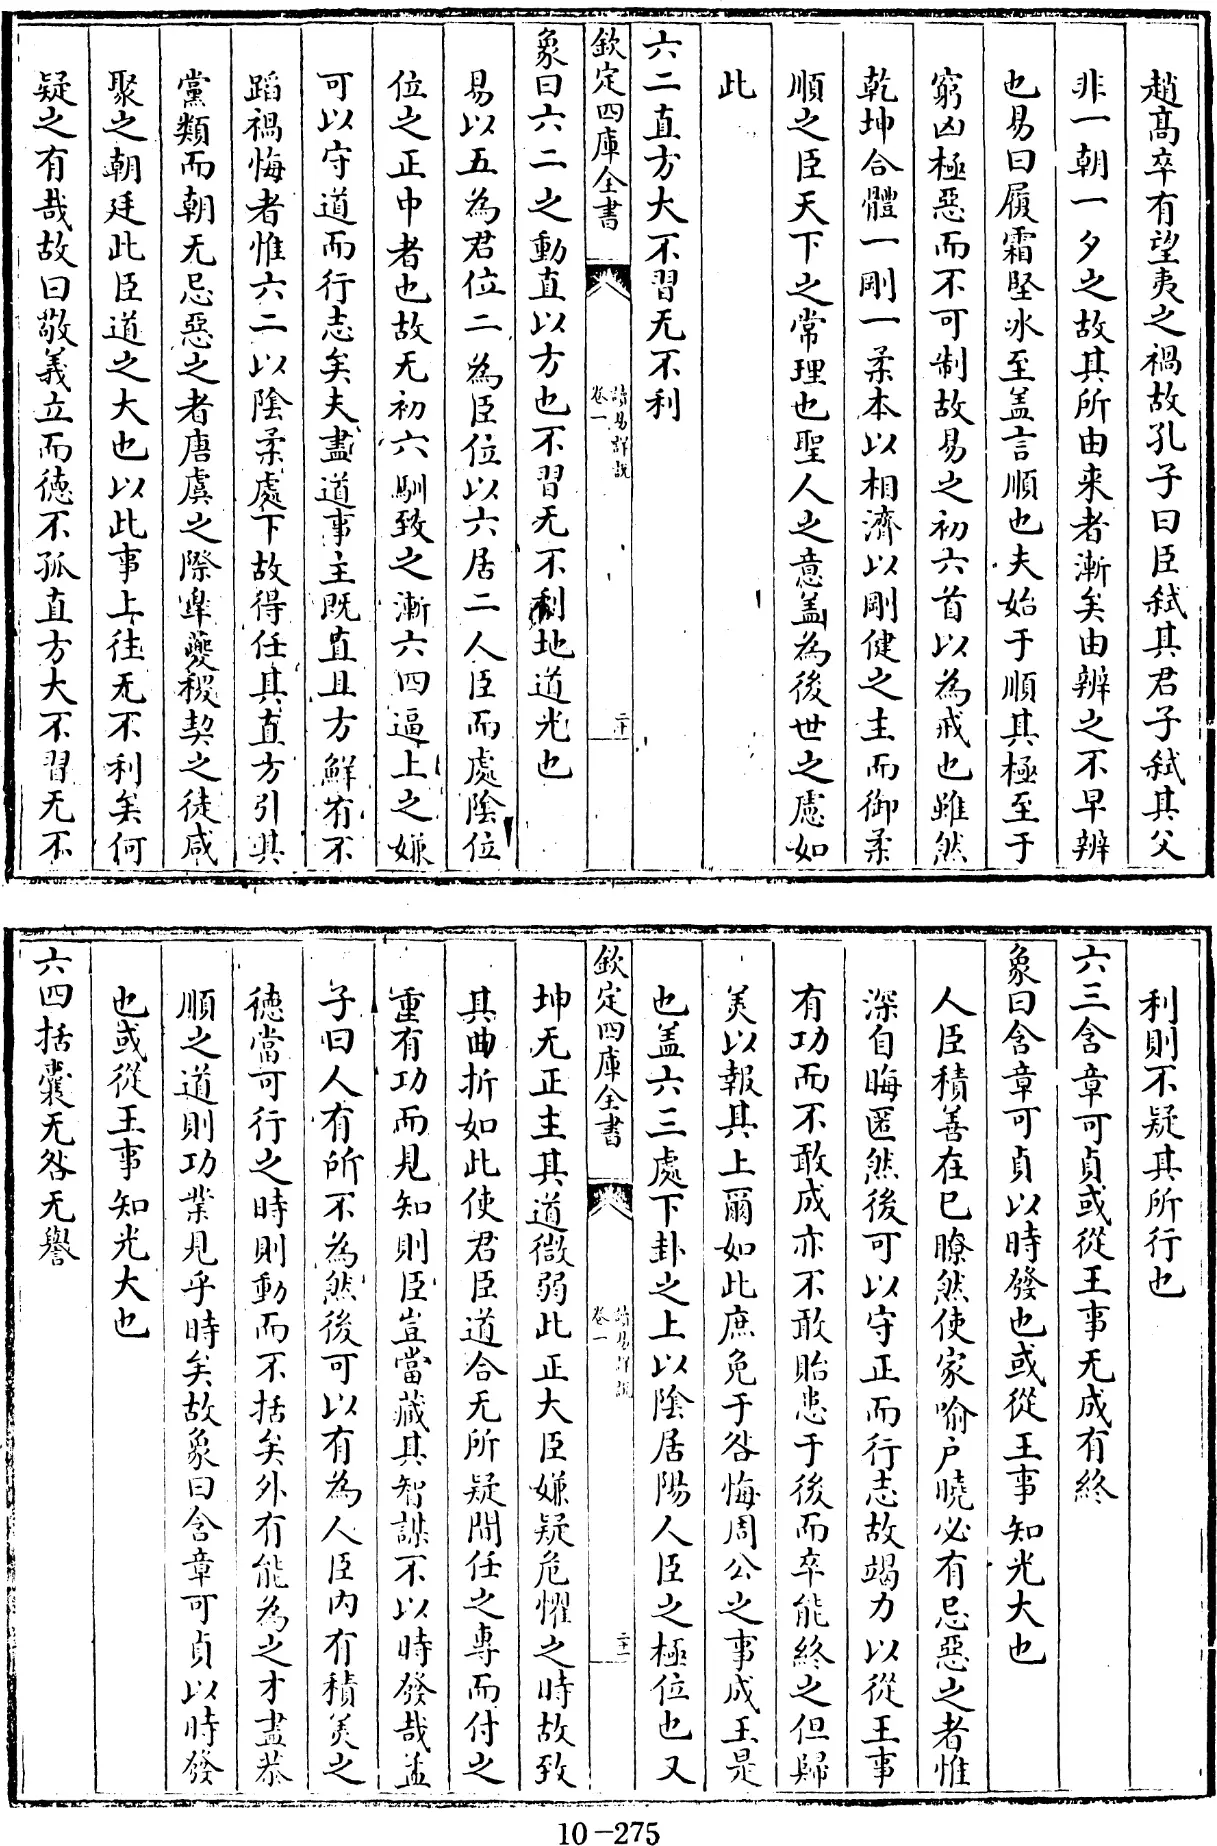 趙髙卒有望夷之禍故孔子曰臣弑其君子弑其父
非一朝一夕之故其所由来者漸矣由辨之不早辨
也易曰履霜堅冰至盖言順也夫始于順其極至于
窮凶極惡而不可制故易之初六首以為戒也雖然
乾坤合體一剛一柔本以相濟以剛健之主而御柔
順之臣天下之常理也聖人之意盖為後世之慮如
此
六二直方大不習无不利
欽定四庫全書
讀易詳說
卷一
二十
象曰六二之動直以方也不習无不利地道光也
易以五為君位二為臣位以六居二人臣而處陰位
位之正中者也故无初六馴致之漸六四逼上之嫌
可以守道而行志矣夫盡道事主既直且方鮮有不
蹈禍悔者惟六二以陰柔處下故得任其直方引其
黨類而朝无忌惡之者唐虞之際臯夔稷契之徒咸
聚之朝廷此臣道之大也以此事上往无不利矣何
疑之有哉故曰敬義立而德不孤直方大不習无不
利則不疑其所行也
六三含章可貞或從王事无成有終
象曰含章可貞以時發也或從王事知光大也
人臣積善在已瞭然使家喻户曉必有忌惡之者惟
深自晦匿然後可以守正而行志故竭力以從王事
有功而不敢成亦不敢貽患于後而卒能終之但歸
美以報其上爾如此庶免于咎悔周公之事成王是
也盖六三處下卦之上以陰居陽人臣之極位也又
欽定四庫全書
讀易詳說
卷一
二十一
坤无正主其道微弱此正大臣嫌疑危懼之時故致
其曲折如此使君臣道合无所疑間任之專而付之
重有功而見知則臣豈當藏其智謀不以時發哉孟
子曰人有所不為然後可以有為人臣内有積美之
德當可行之時則動而不括矣外有能為之才盡恭
順之道則功業見乎時矣故象曰含章可貞以時發
也或從王事知光大也
六四括囊无咎无譽
10-275